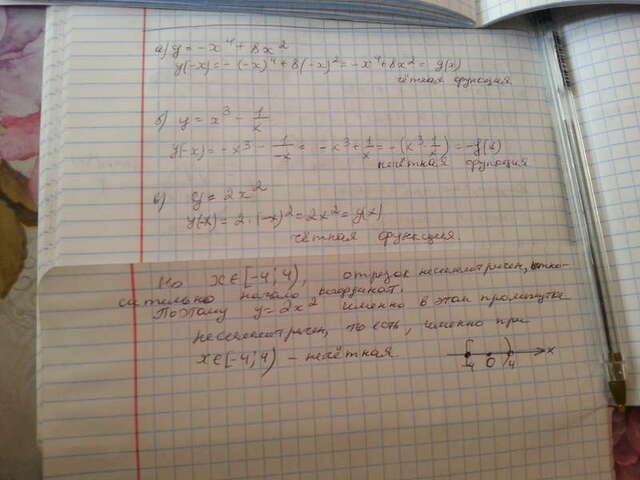 а) y = -x⁴ + 8x²
y(-x) = -(-x)⁴ + 8(-x)² = -x⁴ + 8x² = y(x)
чётная функция
б) y = x³ - 1/x
y(-x) = -x³ - 1/-x = -x³ + 1/x = -(x³ - 1/x) = -y(x)
нечётная функция
в) y = 2x²
y(-x) = 2·(-x)² = 2x² = y(x)
чётная функция
Но x∈[-4; 4), отрезок несимметричен, относ-
ительно начала координат.
Поэтому y = 2x² именно в этом промежутке
несимметричен, то есть, именно при
x∈[-4; 4) - нечётная
-4 0 4 x